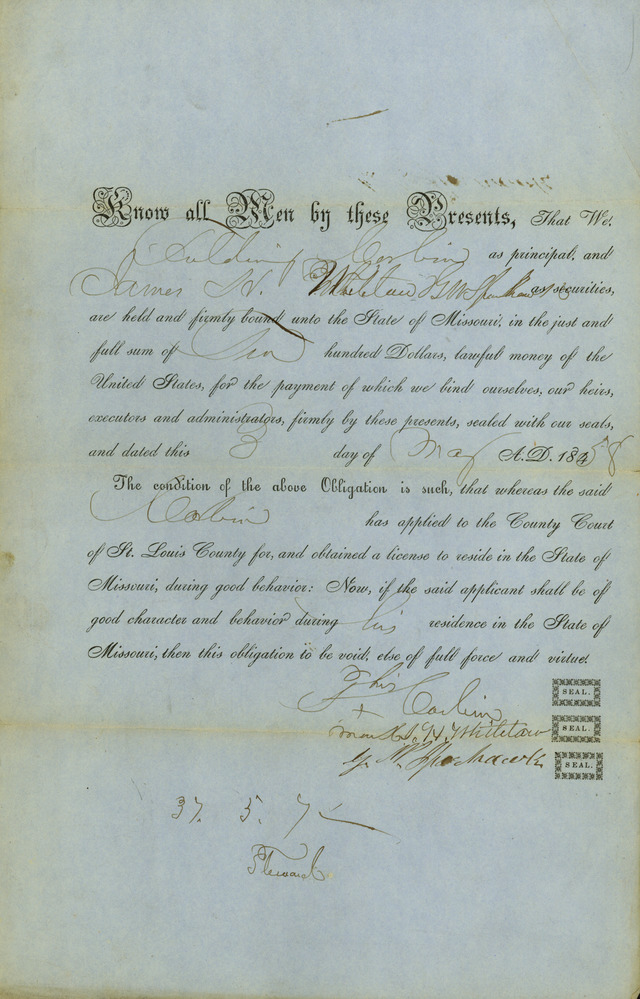 Know all Men by these Presents, That We,
Corbin as principal, and
James W. as securities,
are held and firmly bound unto the State of Missouri, in the just and
full sum of hundred Dollars, lawful money of the
United States, for the payment of which we bind ourselves, our heirs,
executors and administrators, firmly by these presents, sealed with our seals,
and dated this 3 day of May A.D. 1858
The condition of the above Obligation is such, that whereas the said
Corbin has applied to the County Court
of St. Louis County for, and obtained a license to reside in the State of
Missouri, during good behavior: Now, if the said applicant shall be of
good character and behavior during his residence in the State of
Missouri, then this obligation to be void, else of full force and virtue.
F his Corbin SEAL.
+
mark SEAL.
G. W. SEAL.
37. 5. 7